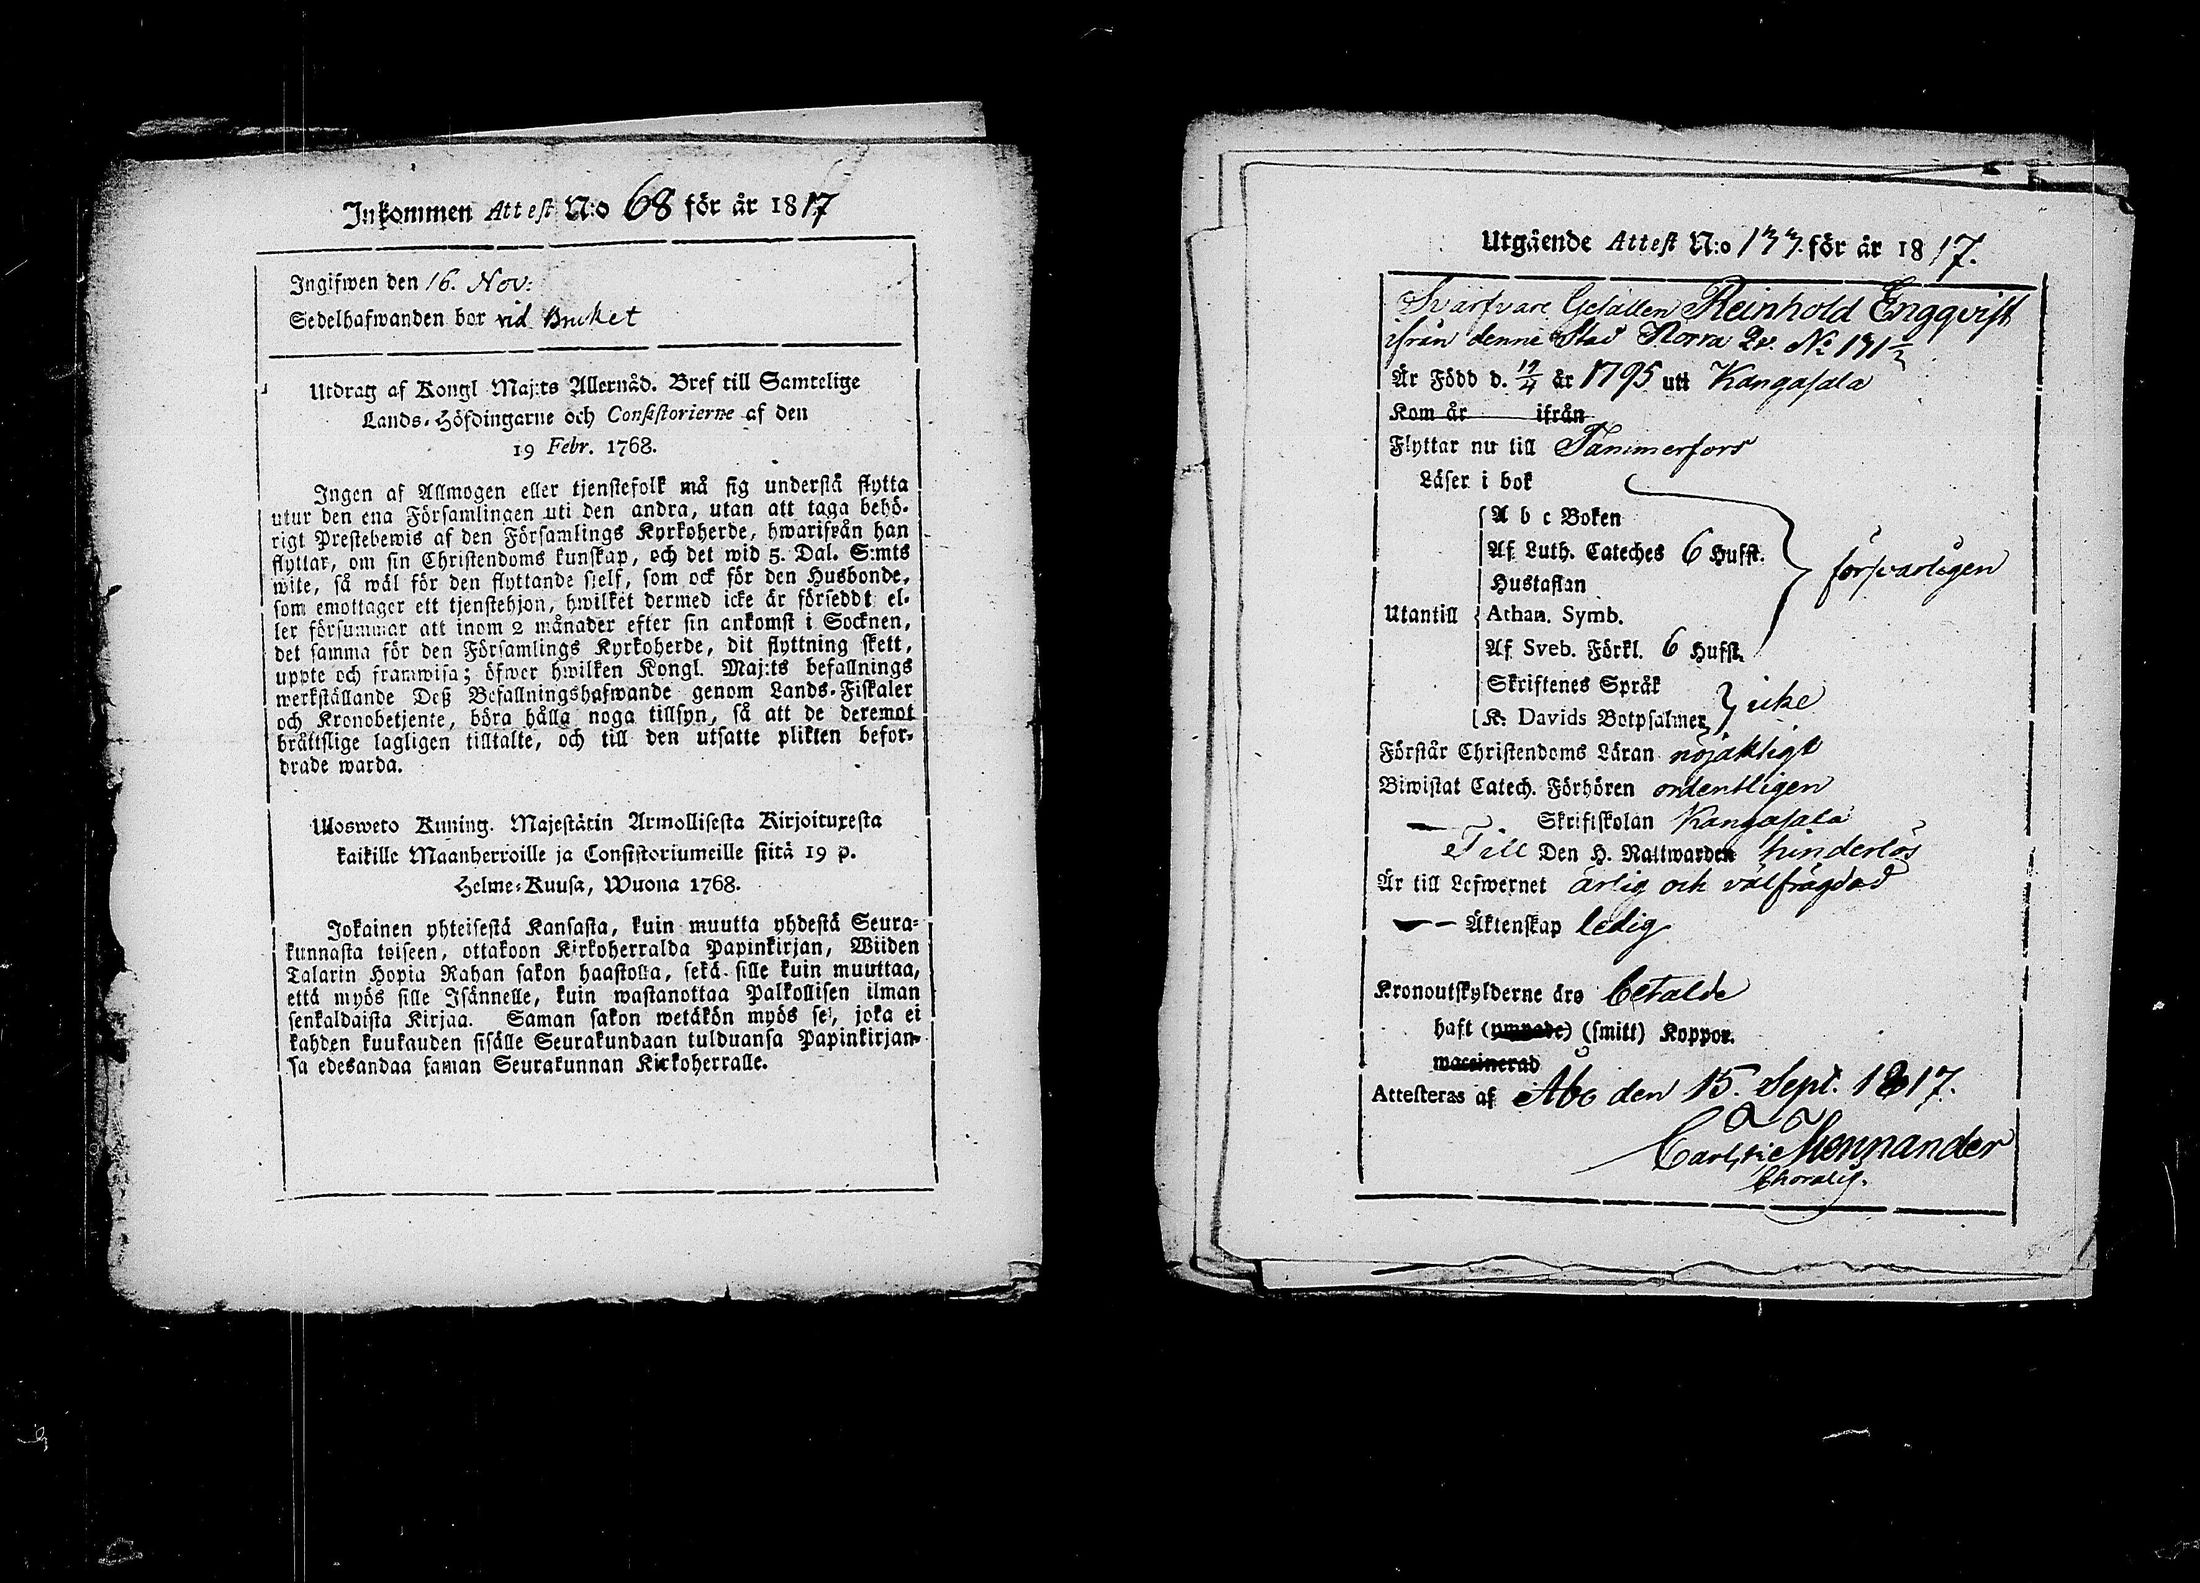 Inkommen Attest N:o 68 för år 1817
Ingifwen den 16. Nov:
Sedelhafwanden bor vid Bruket
Utdrag af Kongl Maj:ts Allernåd. Bref till Samtelige
Lands-Höfdingarne och Consistorierne af den
19 Febr. 1768.
Ingen af Allmogen eller tjenstefolk må sig understå flytta
utur den ena Församlingen uti den andra, utan att taga behö-
rigt Prestebewis af den Församlings Kyrkoherde, hwarifrån han
flyttar, om sin Christendoms kunskap, och det wid 5. Dal. S:mts
wite, så wäl för den flyttande sjelf, som ock för den Husbonde,
som emottager ett tjenstehjon, hwilket dermed icke är försedt el-
ler försummar att inom 2 månader efter sin ankomst i Socknen,
det samma för den Församlings Kyrkoherde, dit flyttning skett,
uppte och framwisa; öfwer hwilken Kongl. Maj:ts befallnings
werkställande Deß Befallningshafwande genom Lands-Fiskaler
och Kronobetjente, böra hålla noga tillsyn, så att de deremot
bråttslige lagligen tilltalte, och till den utsatte plikten befor-
drade warda.
Ulosweto Kuning. Majestätin Armollisesta Kirjoituxesta
kaikille Maanherroille ja Consistoriumeille siitä 19 p.
Helme-Kuusa, Wuona 1768.
Jokainen yhteisestä Kansasta, kuin muutta yhdestä Seura-
kunnasta toiseen, ottakoon Kirkoherralda Papinkirjan, Wiiden
Talarin Hopia Rahan sakon haastolla, sekä sille kuin muuttaa,
että myös sille Isännelle, kuin wastanottaa Palkollisen ilman
senkaldaista Kirjaa. Saman sakon wetäkön myös se, joka ei
kahden kuukauden sisälle Seurakundaan tulduansa Papinkirjan-
sa edesandaa saman Seurakunnan Kirkoherralle.
Utgående Attest N:o 133. för år 1817.
Svarfvare Gesällen Reinhold Engqvist
ifrån denne Stad Norra Qv. No 131 1/2
Är Född d. 19/4 år 1795 uti Kangasala
Kom år ifrån
Flyttar nu till Tammerfors
Läser i bok
A b c Boken
Af Luth. Cateches 6 Hufst.
försvarligen
Hustaflan
Utantill Athan. Symb.
Af Sveb. Förkl. 6 Hufst.
Skriftenes Språk
icke
K. Davids Botpsalmer
Förstår Christendoms Läran nöjaktigt
Biwistat Catech. Förhören ordentligen
— Skriftskolan Kangasala
Till Den H. Nattwarden hinderlös
Är till Lefwernet ärlig och välfrägdad
— Äktenskap ledig
Kronoutskylderne äro betalde
haft (ympade) (smitt) Koppor.
waccinerad
Attesteras af Åbo den 15. Sept. 1817.
Mennander